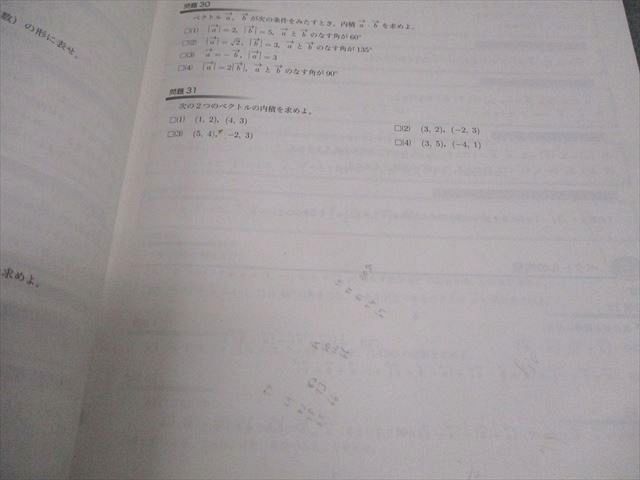 数）の形に表せ。
求めよ。
問題 30
ベクトル a→, b→ が次の条件をみたすとき，内積 a→・b→ を求めよ。
□(1) |a→|=2, |b→|=5, a→ と b→ のなす角が 60°
□(2) |a→|=√2, |b→|=3, a→ と b→ のなす角が 135°
□(3) a→=-b→, |a→|=3
□(4) |a→|=2|b→|, a→ と b→ のなす角が 90°
問題 31
次の2つのベクトルの内積を求めよ。
□(1) (1, 2), (4, 3)
□(2) (3, 2), (-2, 3)
□(3) (5, 4), -2, 3)
□(4) (3, 5), (-4, 1)